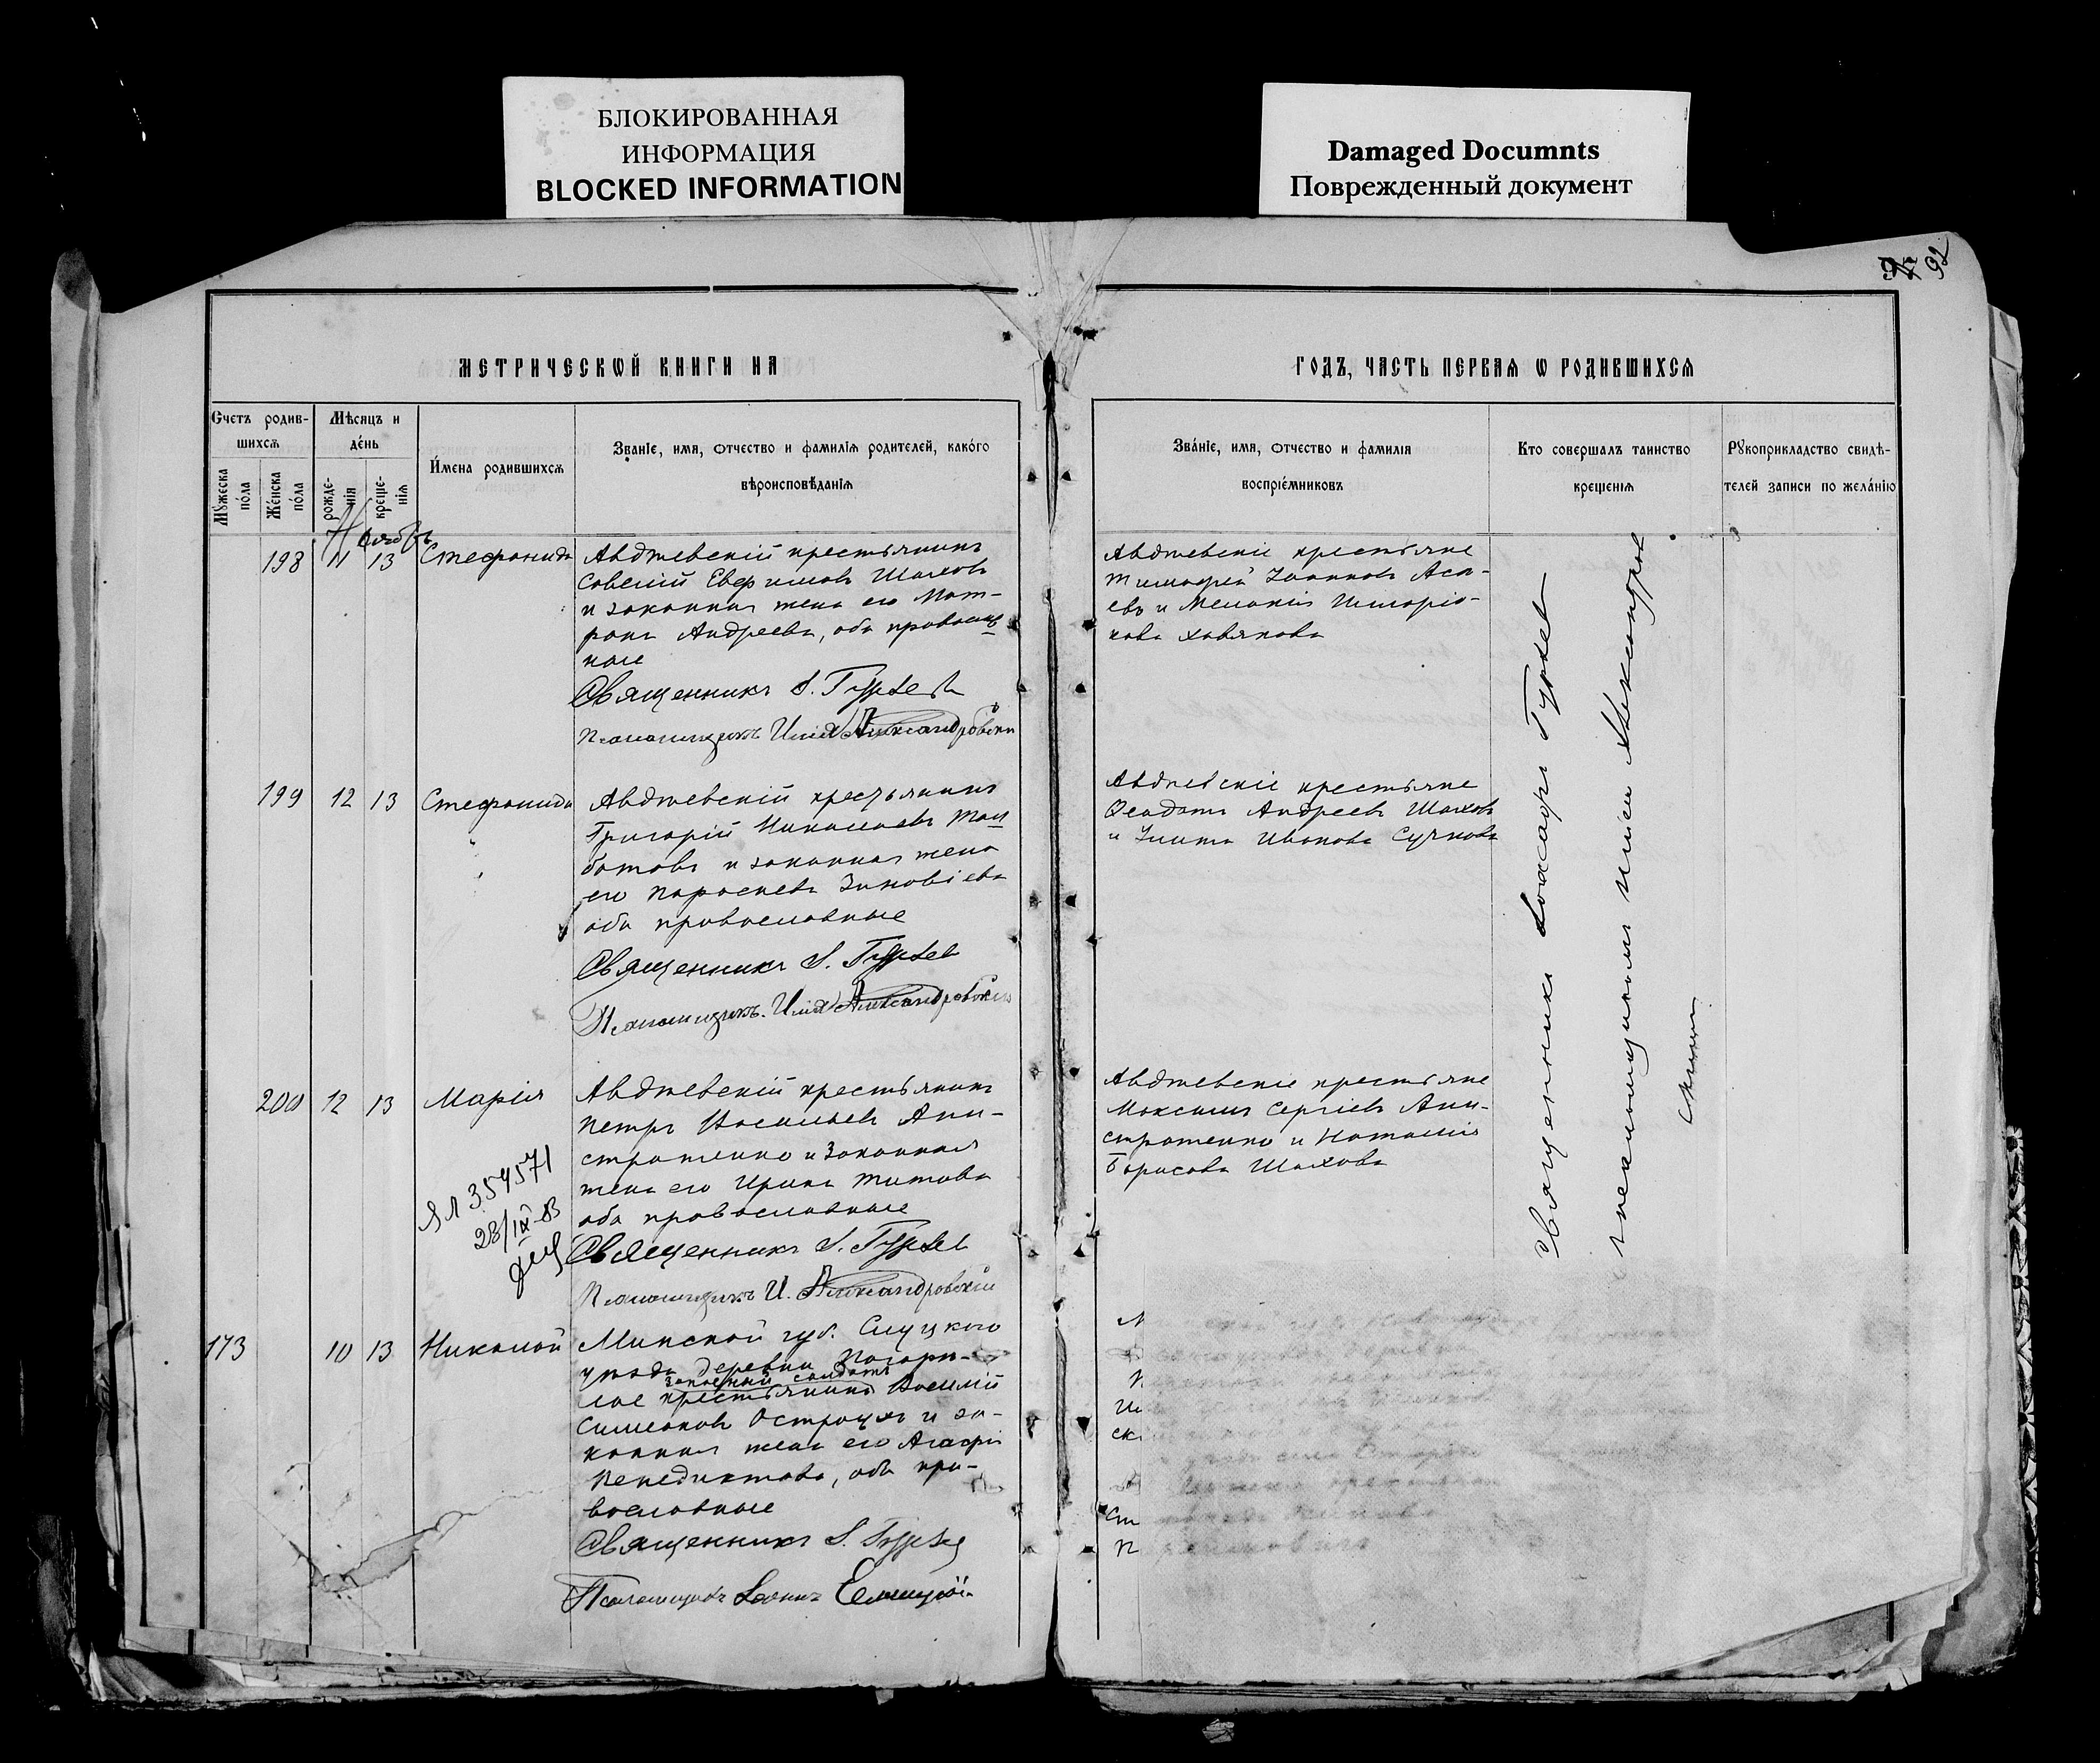 БЛОКИРОВАННАЯ
ИНФОРМАЦИЯ
BLOCKED INFORMATION
Damaged Documnts
Поврежденный документ
92
МЕТРИЧЕСКѠЙ КНИГИ НА
ГОДЪ, ЧАСТЬ ПЕРВАЯ Ѡ РОДИВШИХСЯ
Счетъ родив-
шихся
Мужеска
пола
Женска
пола
Мѣсяцъ и
день
рожде-
нія
креще-
нія
Имена родившихся
Званіе, имя, отчество и фамилія родителей, какого
вѣроисповѣданія
Званіе, имя, отчество и фамилія
воспріемниковъ
Кто совершалъ таинство
крещенія
Рукоприкладство свидѣ-
телей записи по желанію
Ноябрь
198 11 13 Стефанида
Авдѣевскій крестьянинъ
Савелій Евфимовъ Шаховъ
и законная жена его Мат-
рона Андреева, оба православ-
ные
Священникъ І. Гурьевъ
Псаломщикъ Илія Александровскій
Авдѣевскіе крестьяне
Тимофей Іоанновъ Аса-
евъ и Меланія Иларіо-
нова Ховякова
199 12 13 Стефанида
Авдѣевскій крестьянинъ
Григорій Николаевъ Тол
батовъ и законная жена
его Параскева Зиновіева
оба православные
Священникъ І. Гурьев
Псаломщикъ Илія Александровскій
Авдѣевскіе крестьяне
Феодотъ Андреевъ Шаховъ
и Улита Иванова Сучкова
200 12 13 Марія
Авдѣевскій крестьянинъ
Петръ Васильевъ Ани-
стратенко и законная
жена его Ирина Титова
оба православные
Священникъ І. Гурьев
Псаломщикъ И. Александровскій
ЯЛ 354571
28/IX-83
Авдѣевскіе крестьяне
Максимъ Сергіевъ Ани-
стратенко и Наталія
Борисова Шахова
173 10 13 Николай
Минской губ. Слуцкого
уѣзда деревни Погорѣ-
запасный солдатъ
лое крестьянинъ Василій
Симеоновъ Остроухъ и за-
конная жена его Агафія
Венедиктова, оба пра-
вославные
Священникъ І. Гурьев
Псаломщикъ Іоаннъ
Священникъ Іоасафъ Гурьевъ
псаломщикомъ Иліею Александров
скимъ